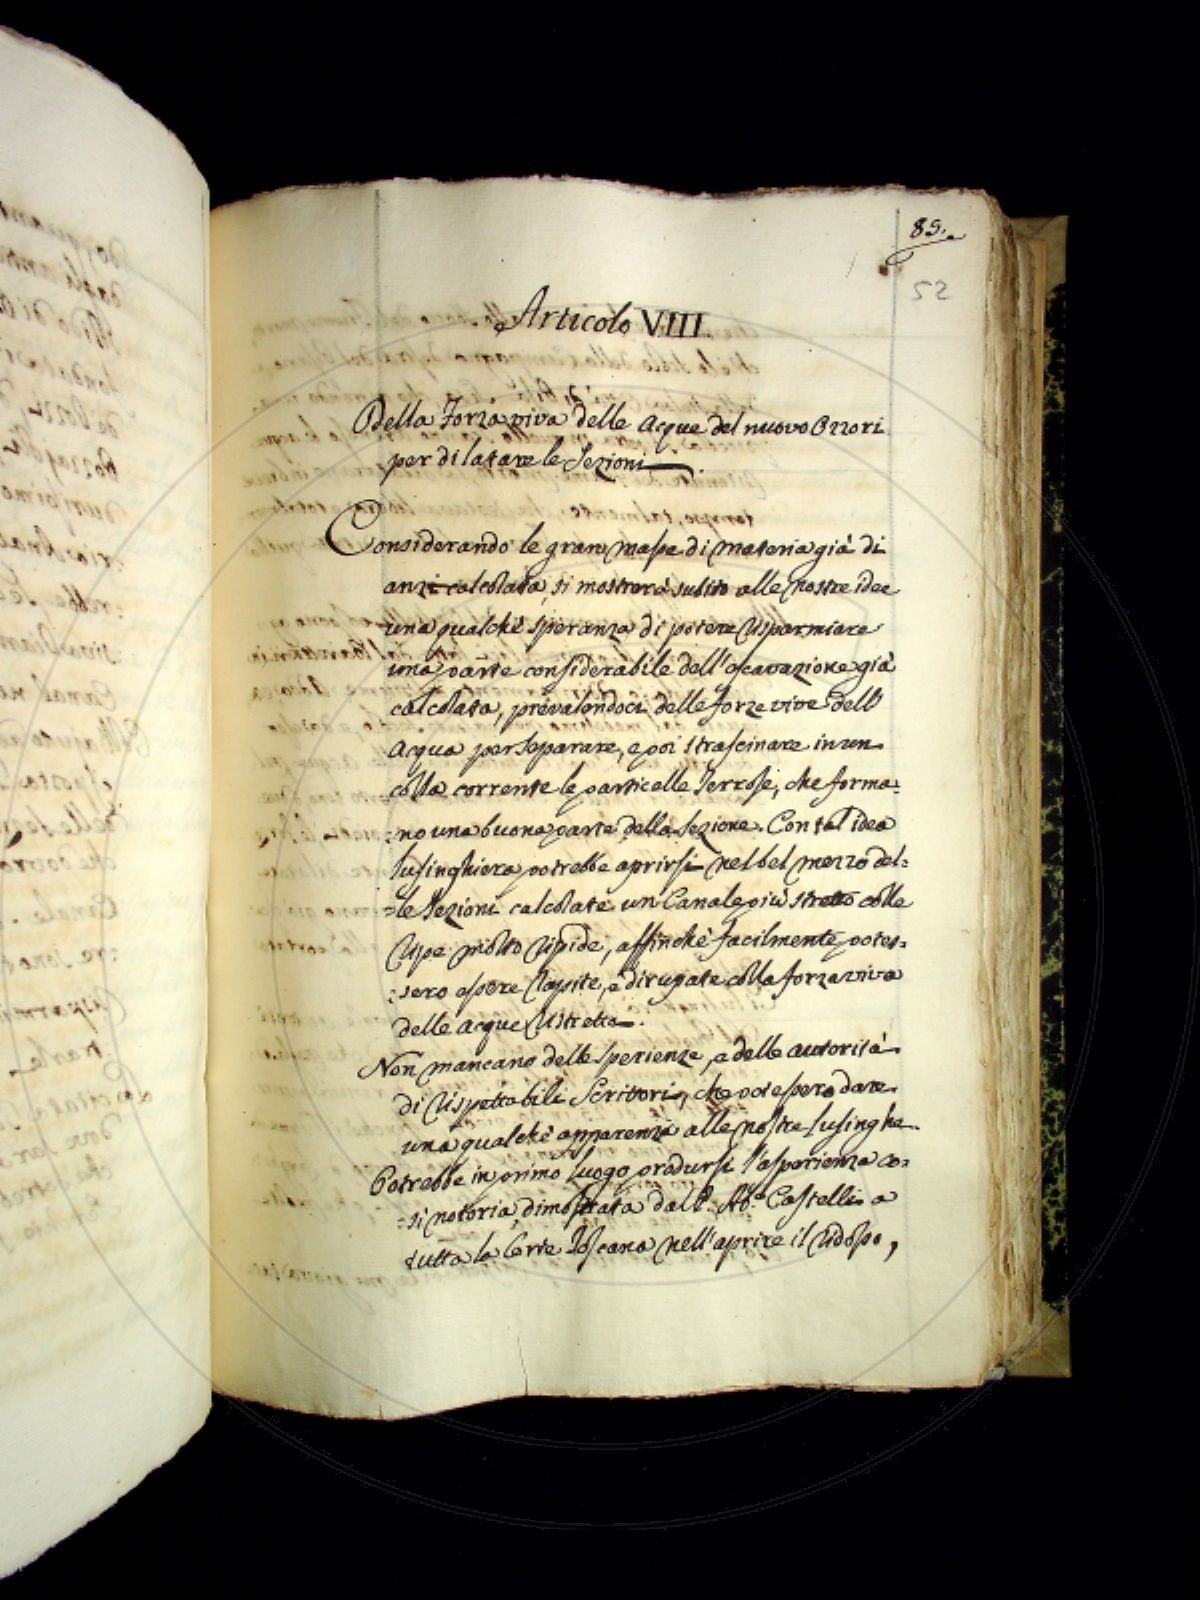 85.
52
Articolo VIII.
Della Forza viva delle Acque del nuovo Ozzori
per dilatare le Sezioni.
Considerando le gran masse di materia già di
anzi calcolata, si mostrerà subito alle nostre idee
una qualche speranza di potere risparmiare
una parte considerabile dell'escavazione già
calcolata, prevalendoci delle forze vive dell'
Acqua per separare, e poi strascinare in un
colla corrente le particelle Terrose, che forma=
=no una buona parte della Sezione. Con tal idea
lusinghiera potrebbe aprirsi nel bel mezzo del=
=le Sezioni calcolate un Canale più stretto colle
ripe molto ripide, affinchè facilmente potes=
=sero essere rapite, e dirupate colla forza viva
delle Acque ristrette.
Non mancano delle sperienze, e delle autorità
di rispettabili Scrittori, che potessero dare
una qualche apparenza alle nostre lusinghe.
Potrebbe in primo luogo prodursi l'esperienza co=
=sì notoria, dimostrata dal P. Ab.e Castelli a
tutta la Corte Toscana nell'aprire il ridosso,